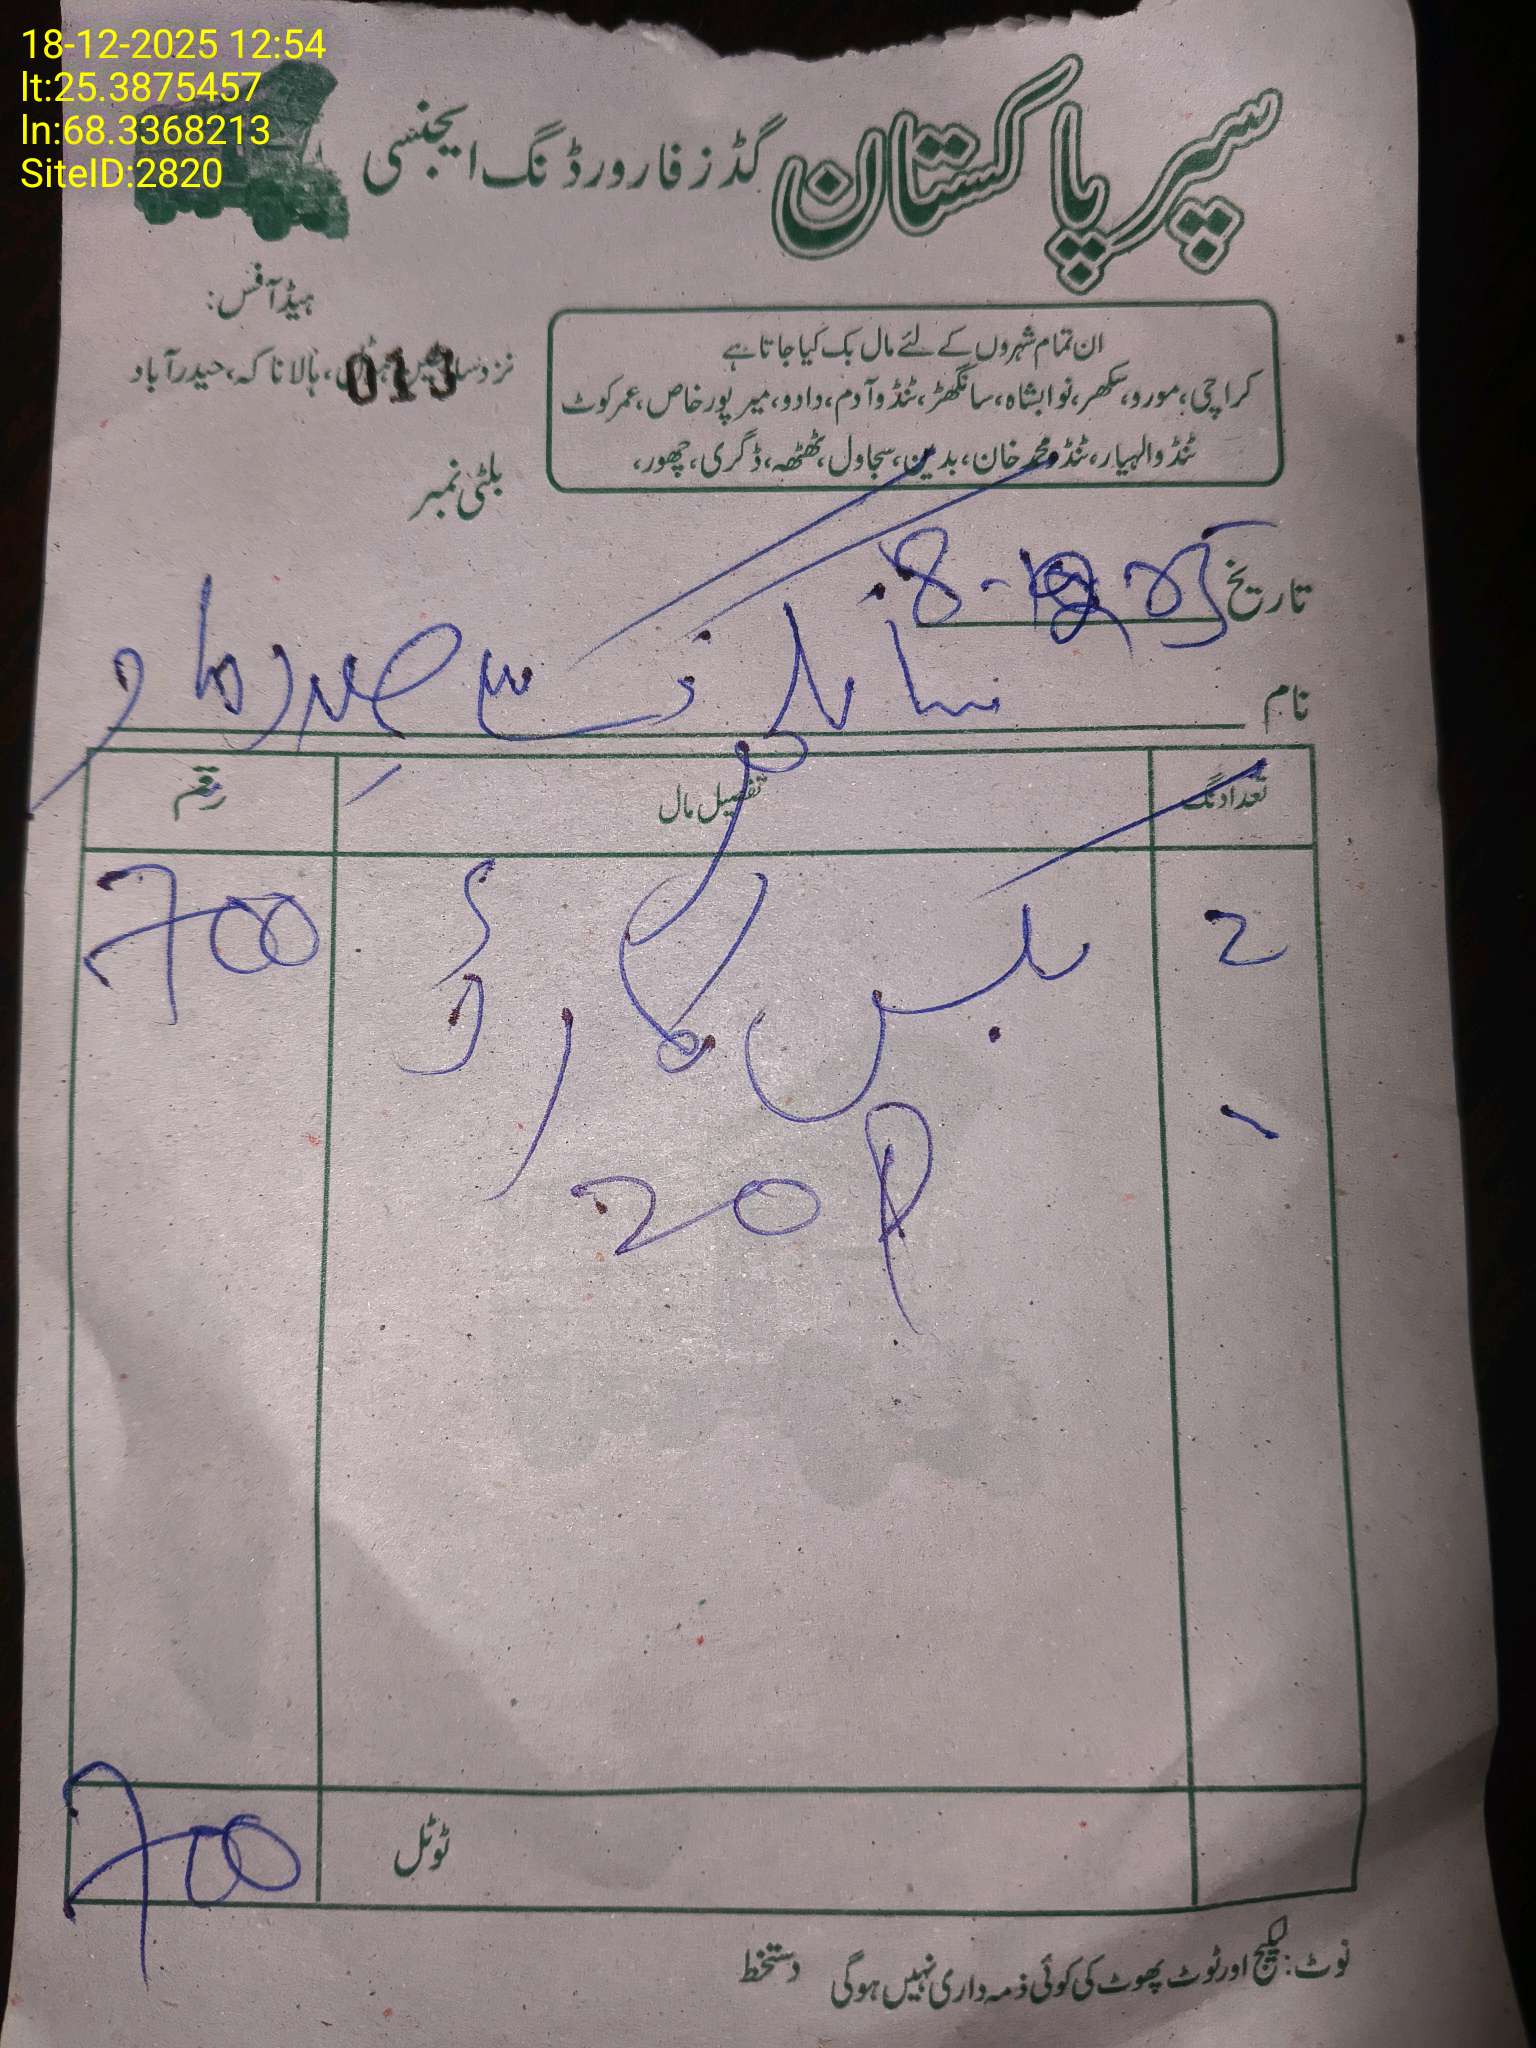 18-12-2025 12:54
lt:25.3875457
ln:68.3368213
SiteID:2820
سپر پاکستان گڈز فارورڈنگ ایجنسی
ہیڈ آفس:
نزد، بالا ناکہ، حیدرآباد
013
ان تمام شہروں کے لئے مال بک کیا جاتا ہے
کراچی، مورو، سکھر، نوابشاہ، سانگھڑ، ٹنڈو آدم، دادو، میرپورخاص، عمرکوٹ
ٹنڈوالہیار، ٹنڈو محمد خان، بدین، سجاول، ٹھٹھہ، ڈگری، چھور،
بلٹی نمبر
تاریخ
نام
تعداد نگ تفصیل مال رقم
2 بکس 700
20P
ٹوٹل 700
نوٹ: لیکیج اور ٹوٹ پھوٹ کی کوئی ذمہ داری نہیں ہوگی دستخط